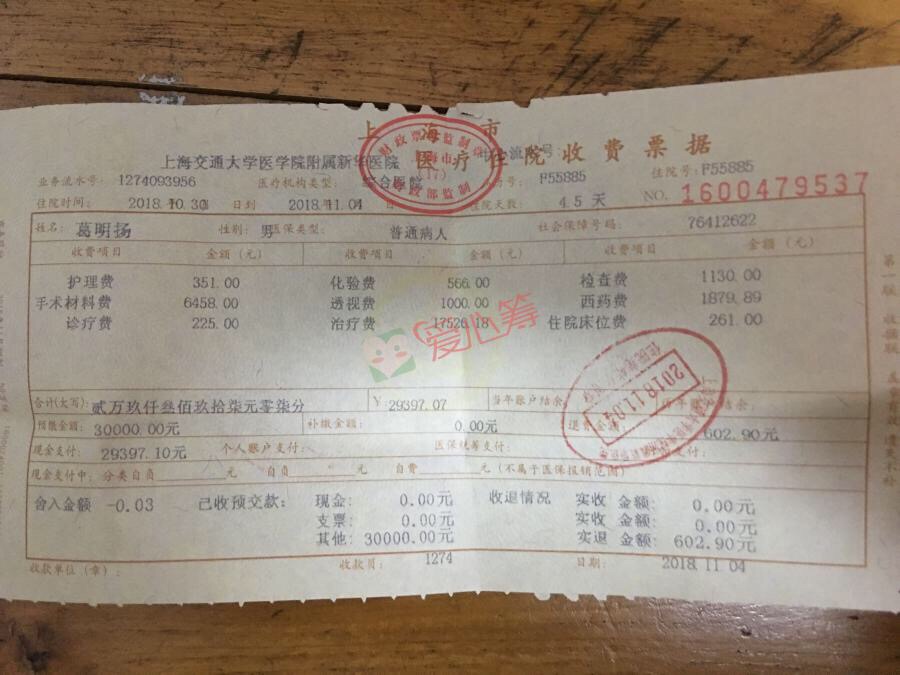 上海市
医疗住院收费票据
上海交通大学医学院附属新华医院
业务流水号: 1274093956 医疗机构类型: 综合医院 F55885 住院号: F55885
住院时间: 2018.10.30 日到 2018.11.04 日 住院天数: 4.5 天 NO. 1600479537
姓名: 葛明扬 性别: 男 医保类型: 普通病人 社会保障号码: 76412622
收费项目 金额(元) 收费项目 金额(元) 收费项目 金额(元)
护理费 351.00 化验费 566.00 检查费 1130.00
手术材料费 6458.00 透视费 1000.00 西药费 1879.89
诊疗费 225.00 治疗费 17526.18 住院床位费 261.00
爱心筹
合计(大写): 贰万玖仟叁佰玖拾柒元零柒分 ¥ 29397.07 当年账户结余: 历年账户结余:
预缴金额: 30000.00元 补缴金额: 0.00元 退费金额: 602.90元
现金支付: 29397.10元 个人账户支付: 医保统筹支付:
现金支付中: 分类自负 元 自负 元 自费 元 (不属于医保报销范围)
舍入金额 -0.03 已收预交款: 现金: 0.00元 收退情况 实收 金额: 0.00元
支票: 0.00元 实收 金额: 0.00元
其他: 30000.00元 实退 金额: 602.90元
收款单位(章): 收款员: 1274 日期: 2018.11.04
2018.11.04